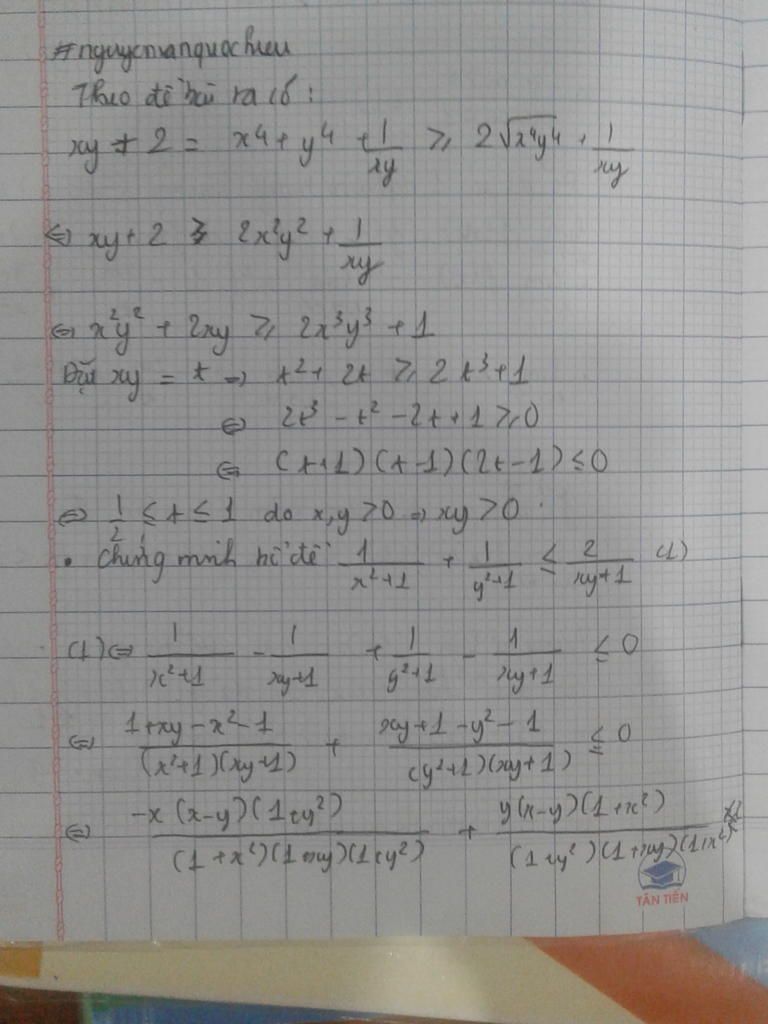 #nguyenvanquochieu
Theo đề bài ra có :
xy + 2 = x⁴ + y⁴ + 1/xy ≥ 2√(x⁴y⁴) + 1/xy
⇔ xy + 2 ≥ 2x²y² + 1/xy
⇔ x²y² + 2xy ≥ 2x³y³ + 1
Đặt xy = t ⇒ t² + 2t ≥ 2t³ + 1
⇔ 2t³ - t² - 2t + 1 ≥ 0
⇔ (t+1)(t-1)(2t-1) ≤ 0
⇔ 1/2 ≤ t ≤ 1 do x,y > 0 ⇒ xy > 0 .
• Chứng minh 1/(x²+1) + 1/(y²+1) ≤ 2/(xy+1) (1)
(1) ⇔ 1/(x²+1) - 1/(xy+1) + 1/(y²+1) - 1/(xy+1) ≤ 0
⇔ (1+xy-x²-1)/((x²+1)(xy+1)) + (xy+1-y²-1)/((y²+1)(xy+1)) ≤ 0
⇔ (-x(x-y)(1+y²))/((1+x²)(1+xy)(1+y²)) + (y(x-y)(1+x²))/((1+y²)(1+xy)(1+x²))
TÂN TIẾN